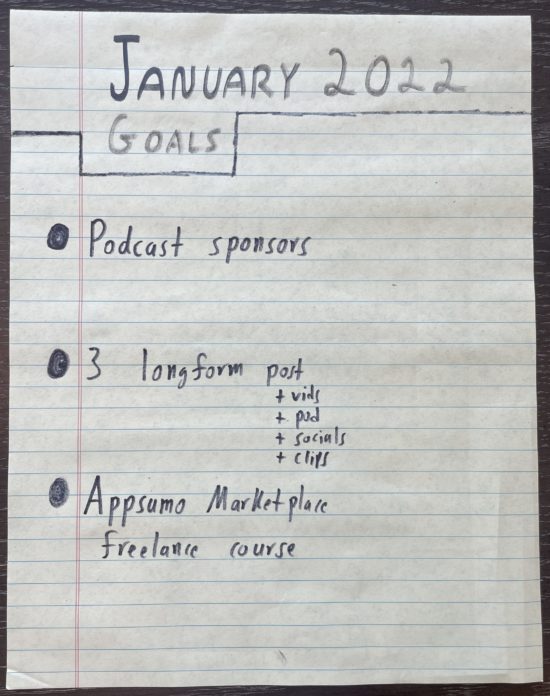 JANUARY 2022
GOALS
Podcast sponsors
3 longform post
+ vids
+ pod
+ socials
+ clips
Appsumo Marketplace
freelance course